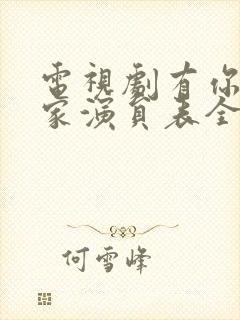 電視劇有你
家演員表全
何雪峰